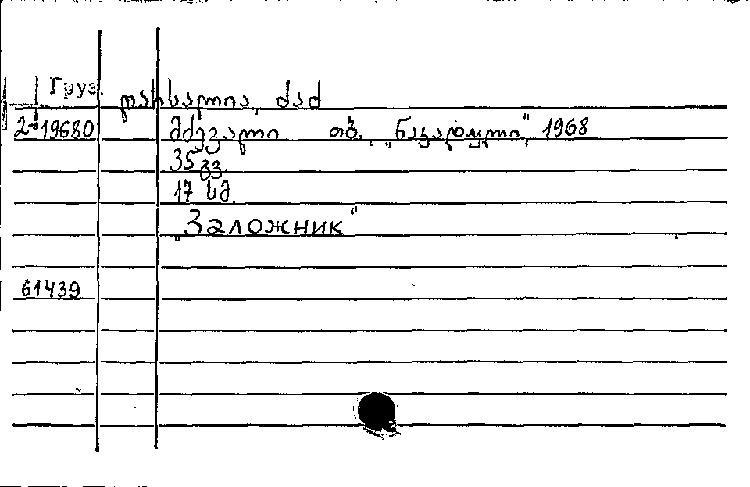 Груз
დარსალია, ძაძ
2-19680 მძევალი თბ. „ნაკადული", 1968
35 გვ.
17 სმ
„Заложник"
61439